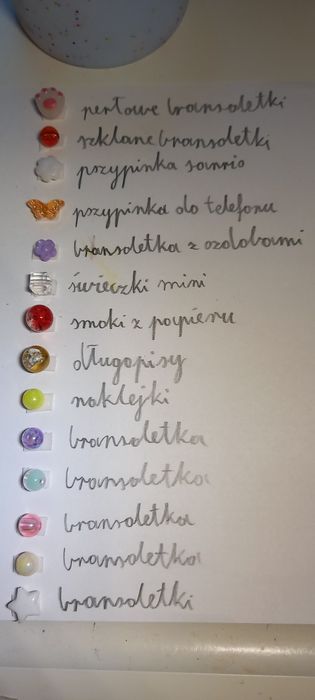 perłowe bransoletki
szklane bransoletki
przypinka sanrio
przypinka do telefonu
bransoletka z ozdobami
świeczki mini
smoki z papieru
długopisy
naklejki
bransoletka
bransoletka
bransoletka
bransoletka
bransoletki